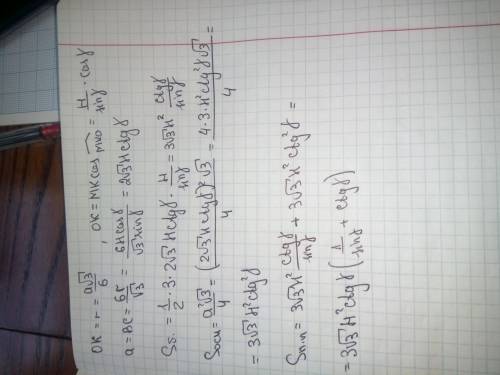 OK = r = a√3/6 ; OK = MK cos MKO = H/sinγ · cosγ
a = BC = 6r/√3 = 6Hcosγ/√3 sinγ = 2√3 H ctgγ
Sб. = 1/2 · 3 · 2√3 H ctgγ · H/sinγ = 3√3 H² ctgγ/sinγ
Sосн = a²√3/4 = (2√3 H ctgγ)² √3/4 = 4·3·H² ctg²γ √3/4 =
= 3√3 H² ctg²γ
Sп.п = 3√3 H² ctgγ/sinγ + 3√3 H² ctg²γ =
= 3√3 H² ctgγ (1/sinγ + ctgγ)